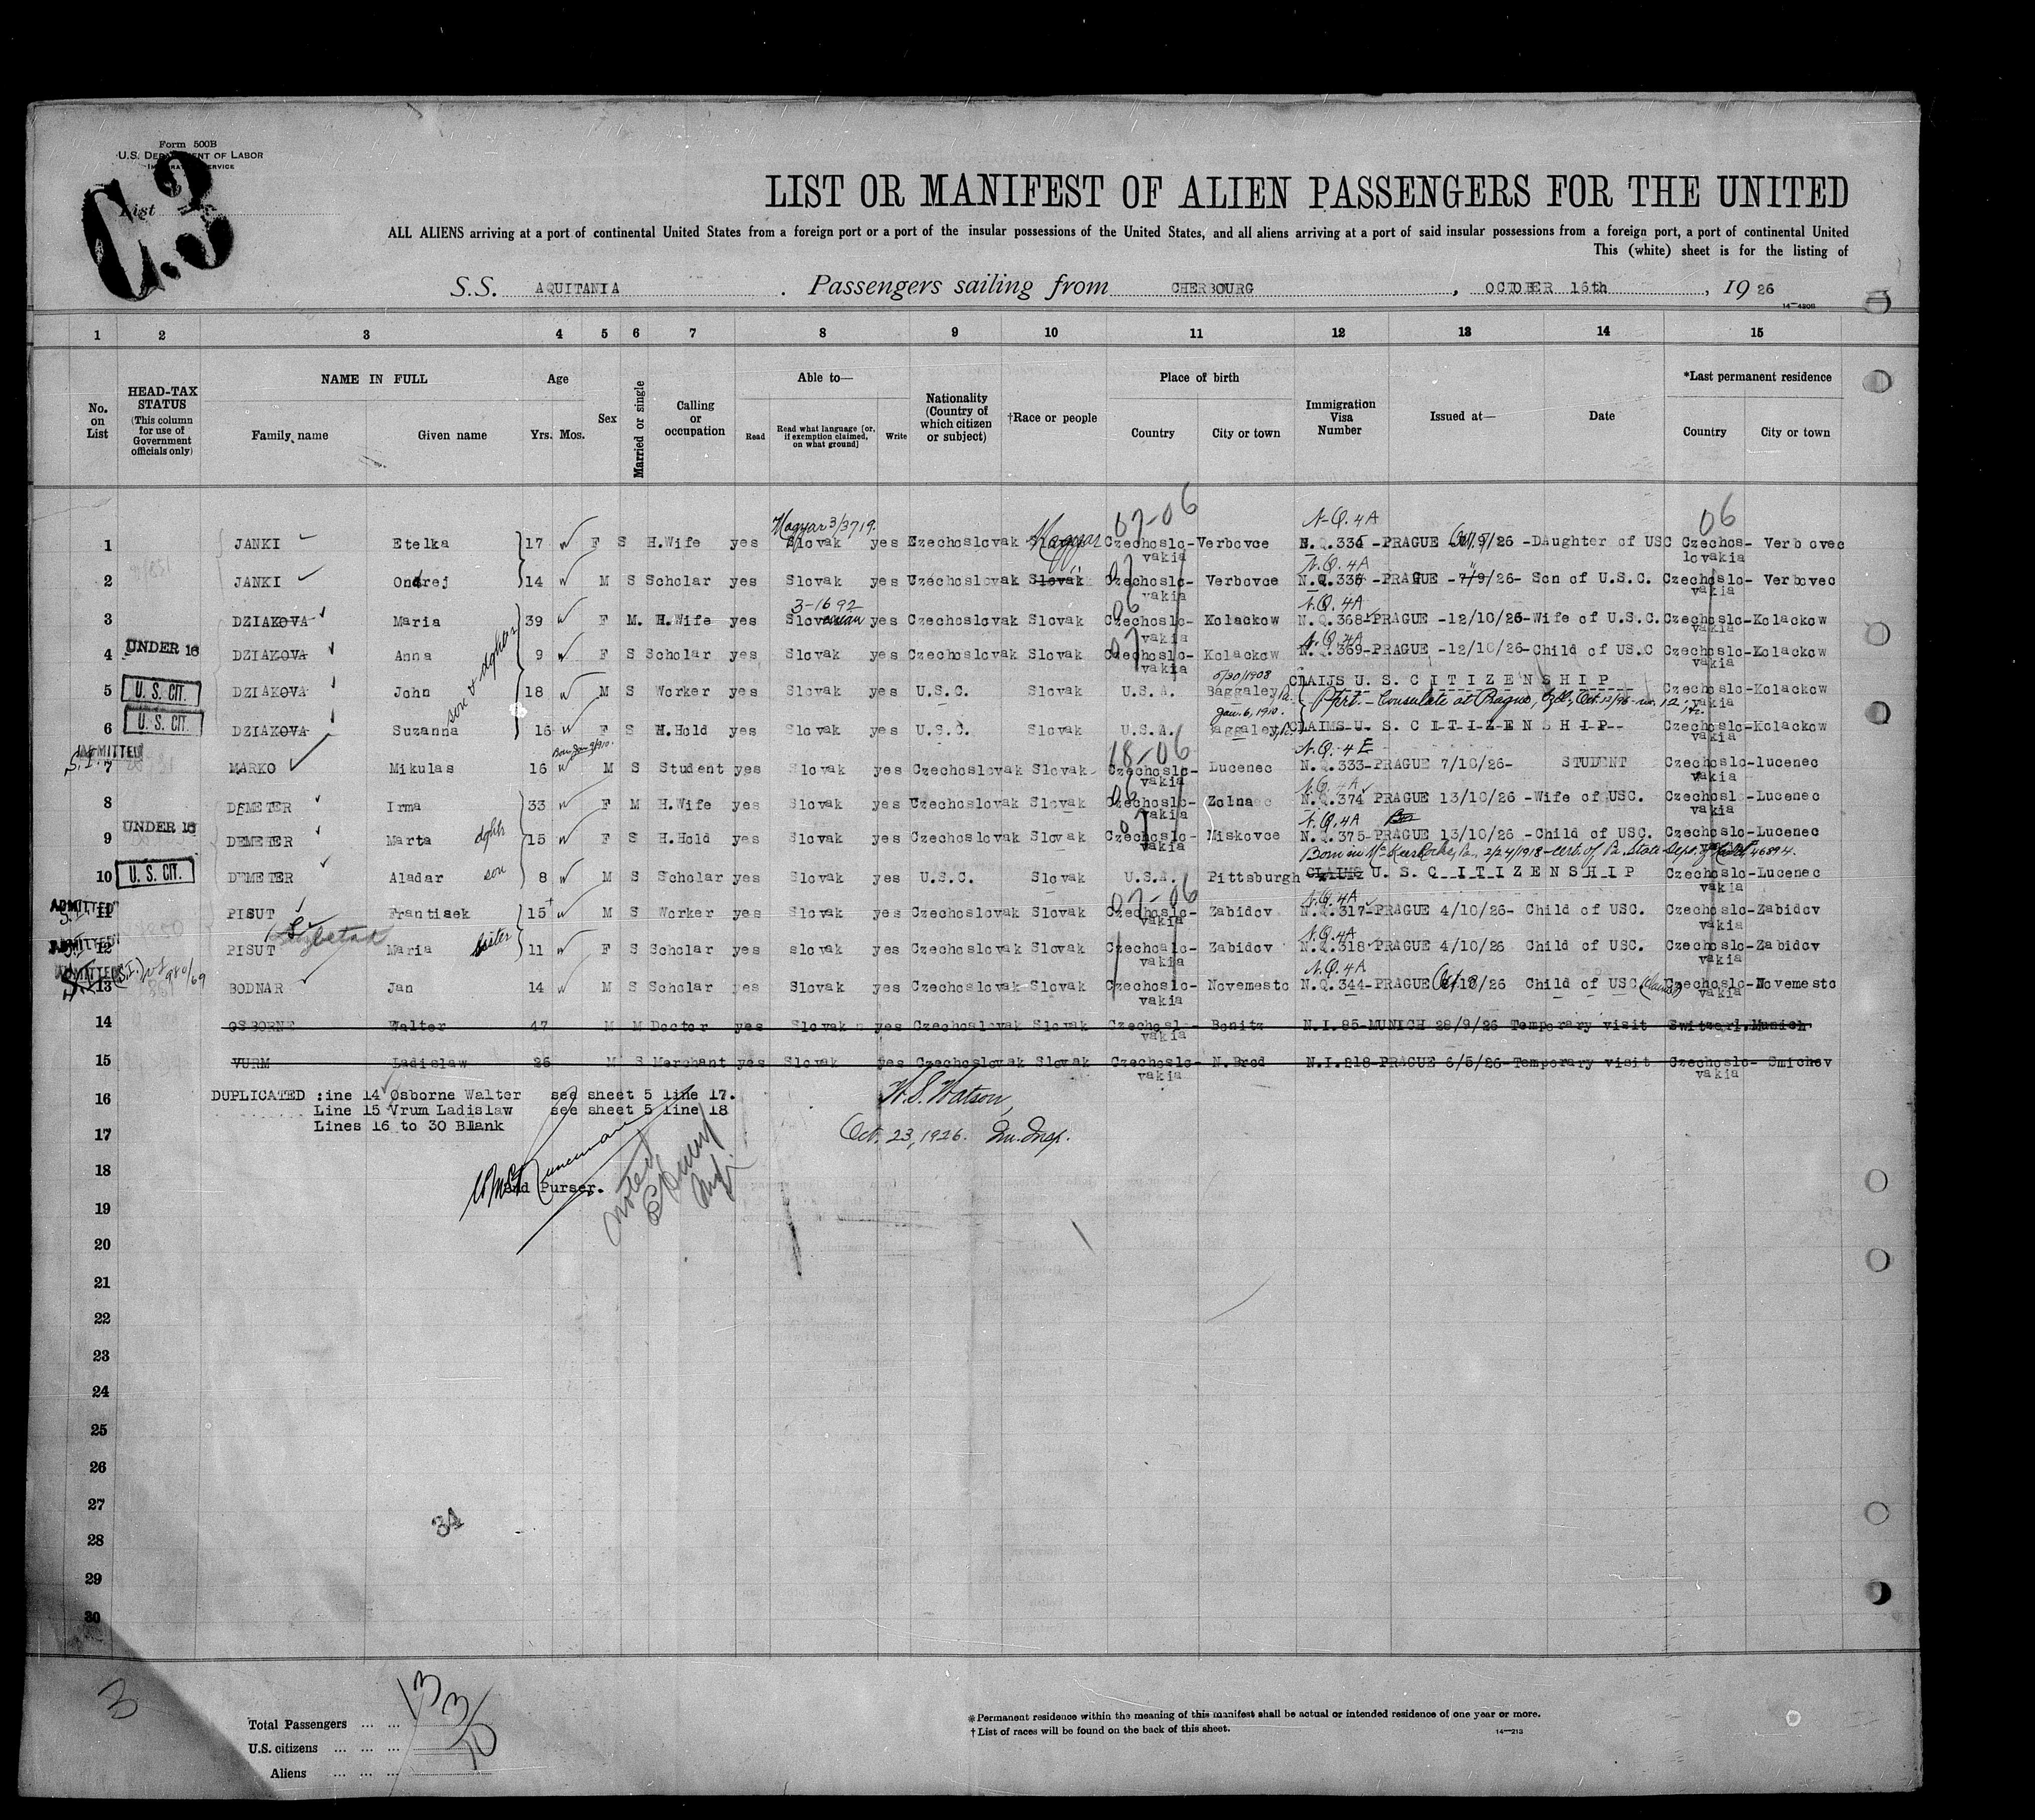 Form 500B
U.S. DEPARTMENT OF LABOR
IMMIGRATION SERVICE
List
C.3
LIST OR MANIFEST OF ALIEN PASSENGERS FOR THE UNITED
ALL ALIENS arriving at a port of continental United States from a foreign port or a port of the insular possessions of the United States, and all aliens arriving at a port of said insular possessions from a foreign port, a port of continental United
This (white) sheet is for the listing of
S.S. AQUITANIA . Passengers sailing from CHERBOURG , OCTOBER 16th , 19 26
14-4208
1 2 3 4 5 6 7 8 9 10 11 12 13 14 15
No. on List
HEAD-TAX STATUS
(This column for use of Government officials only)
NAME IN FULL
Family name Given name
Age
Yrs. Mos.
Sex
Married or single
Calling or occupation
Able to—
Read Read what language [or, if exemption claimed, on what ground] Write
Nationality (Country of which citizen or subject)
†Race or people
Place of birth
Country City or town
Immigration Visa Number
Issued at—
Date
*Last permanent residence
Country City or town
Magyar 3/3719. 07-06 N-Q.4A 06
1 JANKI Etelka 17 F S H.Wife yes Slovak yes Czechoslovak Magyar Czechoslo- Verbovce N.Q.334 -PRAGUE /9/26 -Daughter of USC Czechos- Verb ovec
vakia lovakia
N.Q.4A
2 JANKI Ondrej 14 M S Scholar yes Slovak yes Czechoslovak Slovak Czechoslo- Verbovce N.Q.335 -PRAGUE -7/9/26- Son of U.S.C. Czechoslo- Verbovec
vakia vakia
3-1692 06 N.Q.4A
3 DZIAKOVA Maria 39 F M. H.Wife yes Slovak yes Czechoslovak Slovak Czechoslo- Kolackow N.Q.368-PRAGUE -12/10/26-Wife of U.S.C. Czechoslo-Kolackow
vakia vakia
son & dghter
N.Q.4A
4 UNDER 16 DZIAKOVA Anna 9 F S Scholar yes Slovak yes Czechoslovak Slovak Czechoslo- Kolackow N.Q.369-PRAGUE -12/10/26-Child of US.C Czechoslo-Kolackow
vakia vakia
5/30/1908
5 U. S. CIT. DZIAKOVA John 18 M S Worker yes Slovak yes U.S.C. Slovak U.S.A. Baggaley Pa. CLAIJS U. S. C I T I Z E N S H I P Czechoslo-Kolackow
vakia
Jan. 6, 1910.
6 U. S. CIT. DZIAKOVA Suzanna 16 F S H.Hold yes Slovak yes U.S.C. Slovak U.S.A. Baggaley Pa. CLAIMS U. S. C I T I Z E N S H I P Czechoslo-Kolackow
vakia
ADMITTED S.I. 18-06 N.Q.4E
7 MARKO Mikulas 16 M S Student yes Slovak yes Czechoslovak Slovak Czechoslo- Lucenec N.Q.333-PRAGUE 7/10/26- STUDENT Czechoslo-lucenec
vakia vakia
06 N.Q.4A
8 DEMETER Irma 33 F M H.Wife yes Slovak yes Czechoslovak Slovak Czechoslo- Zolna N.Q.374 PRAGUE 13/10/26 -Wife of USC. Czechoslo-Lucenec
vakia vakia
N.Q.4A
9 UNDER 16 DEMETER Marta dghtr 15 F S H.Hold yes Slovak yes Czechoslovak Slovak Czechoslo- Miskovce N.Q.375-PRAGUE 13/10/26 -Child of USC. Czechoslo-Lucenec
vakia vakia
Born in McKees Rocks, Pa. 2/24/1918 - Cert. of Pa. State Dept. of Health 46894.
10 U. S. CIT. DEMETER Aladar son 8 M S Scholar yes Slovak yes U.S.C. Slovak U.S.A. Pittsburgh CLAIMS U. S. C I T I Z E N S H I P Czechoslo-Lucenec
vakia
ADMITTED S.I. 07-06 N.Q.4A
11 PISUT Frantisek 15 M S Worker yes Slovak yes Czechoslovak Slovak Czechoslo- Zabidov N.Q.317-PRAGUE 4/10/26- Child of USC. Czechoslo-Zabidov
vakia vakia
ADMITTED N.Q.4A
12 PISUT Maria sister 11 F S Scholar yes slovak yes Czechoslovak Slovak Czechoslo- Zabidov N.Q.318 PRAGUE 4/10/26 Child of USC. Czechoslo-Zabidov
vakia vakia
ADMITTED (S.I.) N.Q.4A
13 BODNAR Jan 14 M S Scholar yes Slovak yes Czechoslovak Slovak Czechoslo- Novemesto N.Q.344-PRAGUE /26 Child of USC (claimed) Czechoslo-Novemesto
vakia vakia
14 OSBORNE Walter 47 M M Doctor yes Slovak yes Czechoslovak Slovak Czechoslo- Benitz N.I.85-MUNICH 28/9/26 Temporary visit Switzerl.Munich
vakia
15 VURM Ladislaw 26 M S Merchant yes Slovak yes Czechoslovak Slovak Czechoslo- N.Brod N.I.218-PRAGUE 6/5/26-Temporary visit Czechoslo- Smichov
vakia vakia
16 DUPLICATED :ine 14 Osborne Walter see sheet 5 line 17. W.S. Watson,
Line 15 Vrum Ladislaw see sheet 5 line 18
Lines 16 to 30 Blank
17 Oct. 23, 1926. Im. Insp.
18
2nd Purser. noted
19
20
21
22
23
24
25
26
27
34
28
29
30
3
13
3
Total Passengers ... ...
U.S. citizens ... ... ...
Aliens ... ... ...
*Permanent residence within the meaning of this manifest shall be actual or intended residence of one year or more.
†List of races will be found on the back of this sheet. 14-213